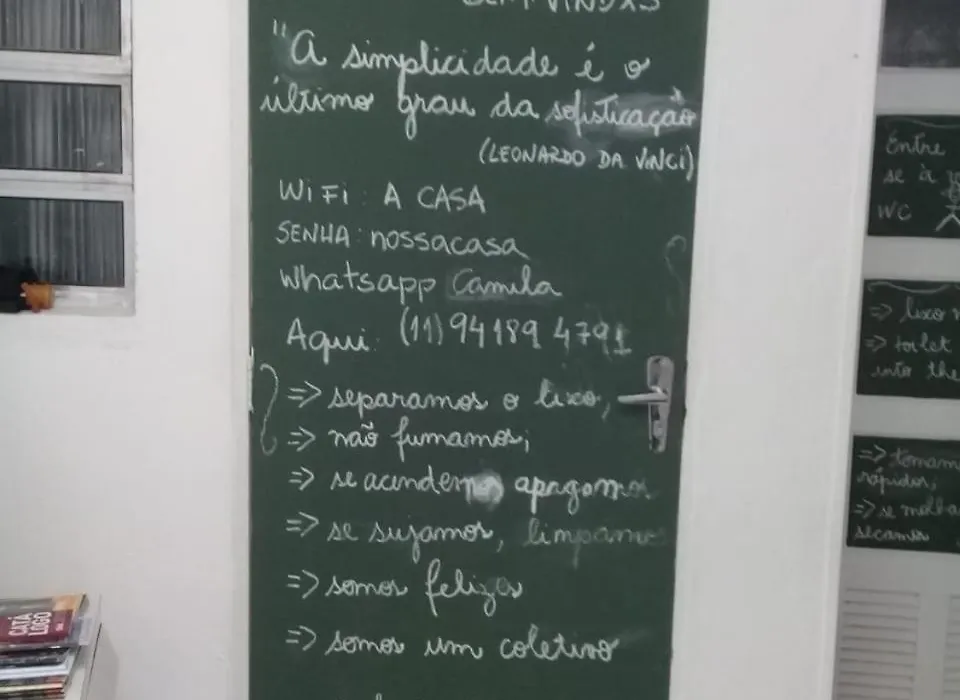 BEM-VINDXS
"A simplicidade é o
último grau da sofisticação
(LEONARDO DA VINCI)
WiFi: A CASA
SENHA: nossacasa
Whatsapp Camila
Aqui: (11) 94189 4791
=> separamos o lixo,
=> não fumamos;
=> se acendemos apagamos
=> se sujamos, limpamos
=> somos felizes
=> somos um coletivo
Entre
se à
WC
=> lixo
=> toilet
into the
=> tomam
rápidos;
=> se molha
secamos
CATÁ
LOGO